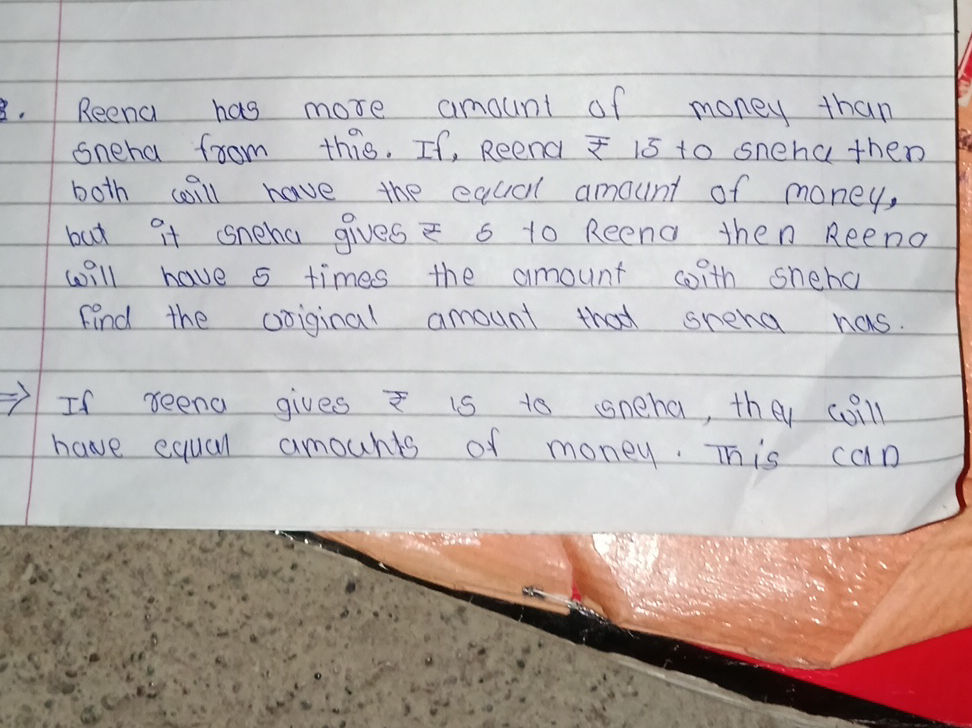 3. Reena has more amount of money than
sneha from this. If, Reena ₹ 15 to sneha then
both will have the equal amount of money,
but it sneha gives ₹ 5 to Reena then Reena
will have 5 times the amount with sneha
find the original amount that sneha has.
⇒ If reena gives ₹ 15 to sneha, they will
have equal amounts of money. This can